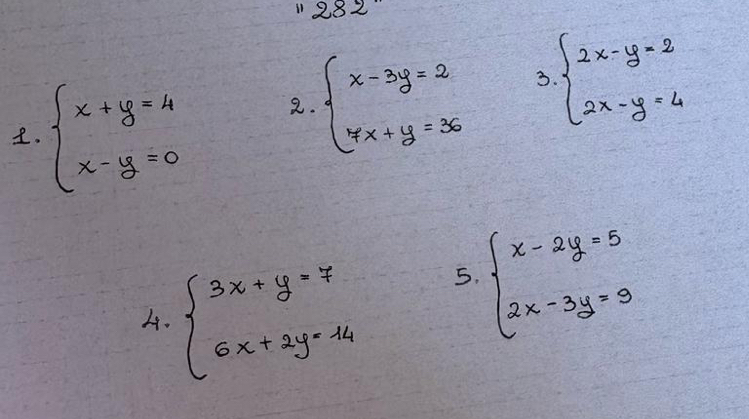 "282"
1. { x + y = 4
x - y = 0
2. { x - 3y = 2
7x + y = 36
3. { 2x - y = 2
2x - y = 4
4. { 3x + y = 7
6x + 2y = 14
5. { x - 2y = 5
2x - 3y = 9